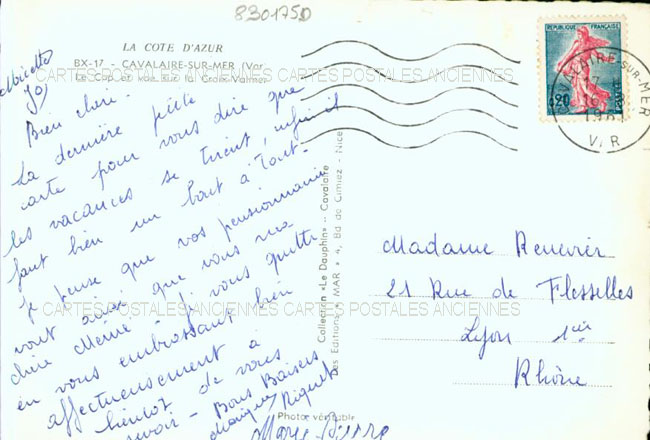 830175D
LA COTE D'AZUR
BX-17 - CAVALAIRE-SUR-MER (Var)
Le Cap et vue sur la Croix-Valmer
CARTES POSTALES ANCIENNES CARTES POSTALES ANCIENNES
Bien chère.
La dernière petite
carte pour vous dire que
les vacances se tirent, enfin il
faut bien un bout à tout.
Je pense que vos pensionnaires
vont ainsi que vous ma
chère Mémé. je vous quitte
en vous embrassant bien
affectueusement à
bientôt de vous
revoir - Bons Baisers
Riquet
Marie Pierre
Collection «Le Dauphin» - Cavalaire
Des Editions "MAR" 4, Bd de Cimiez - Nice
Photo véritable
REPUBLIQUE FRANÇAISE
0,20
POSTES
CAVALAIRE-SUR-MER
17
VAR
Madame Renevier
21 Rue de Flesselles
Lyon 1er
Rhône
CARTES POSTALES ANCIENNES CARTES POSTALES ANCIENNES